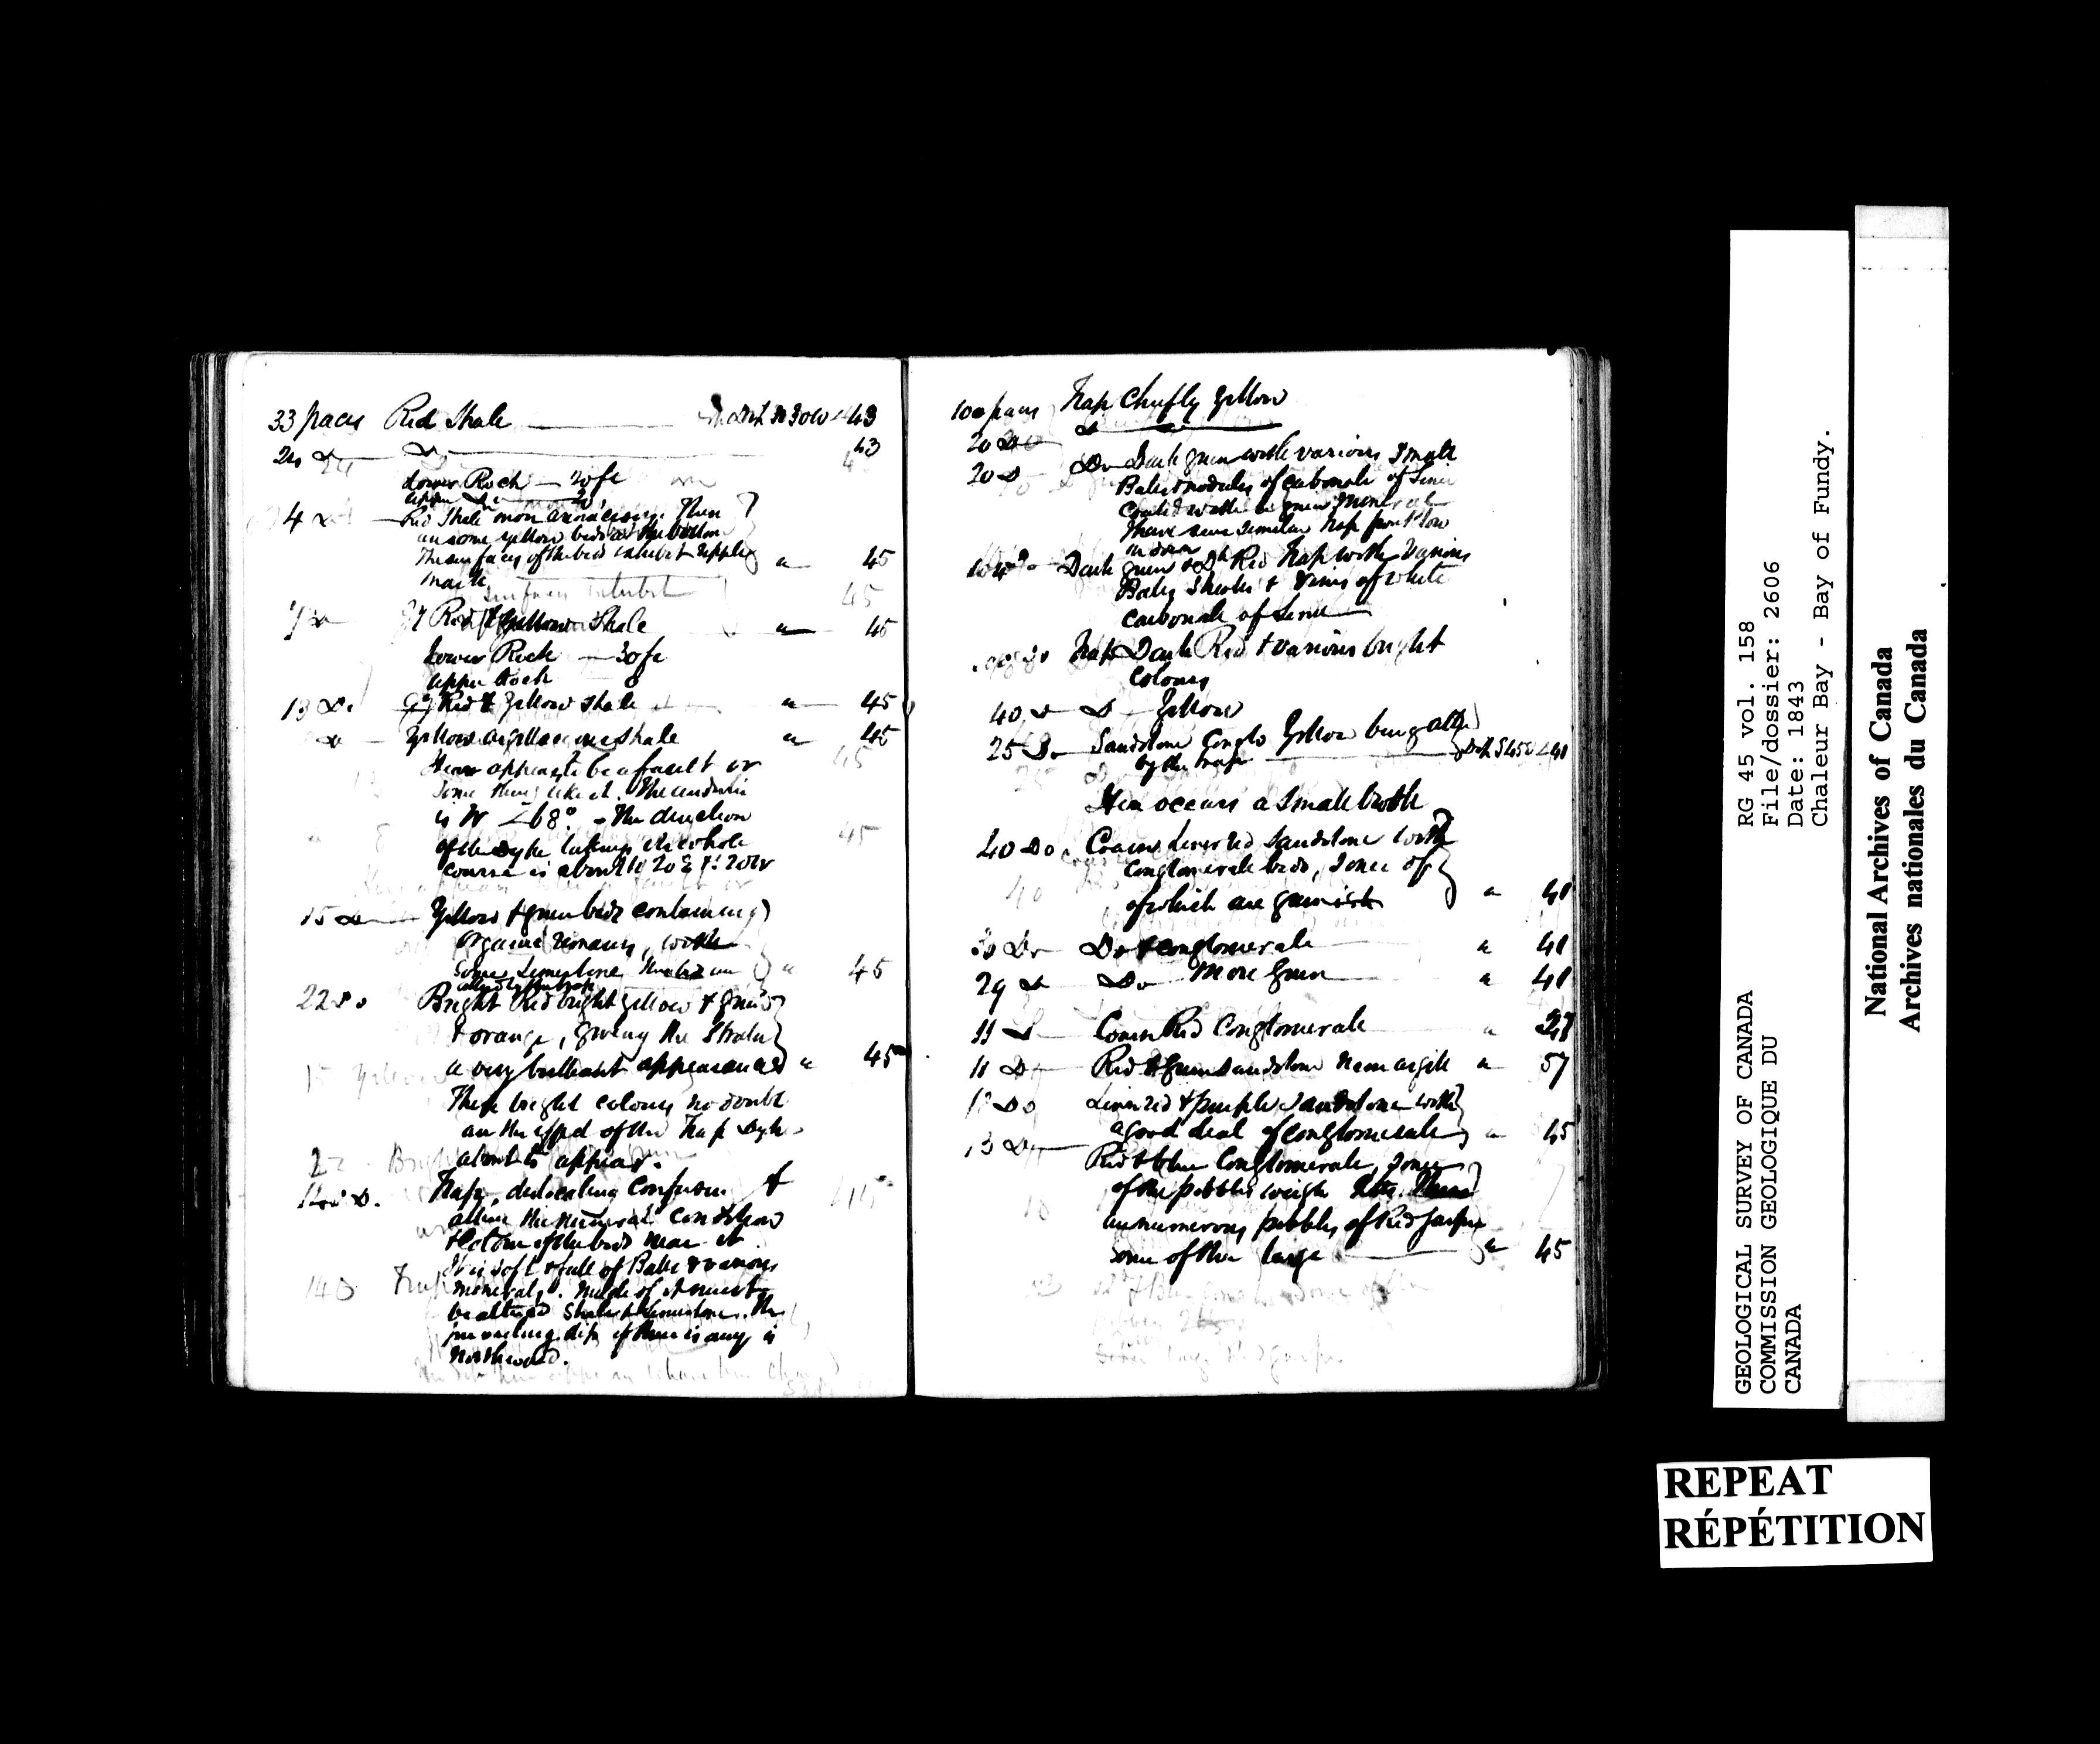 33 paces Red Shale 43
24 Do Do 43
Lower Rock — 20 fe
upper Do 20
4 Do Red Shale more arenaceous. Then
are some yellow beds at the bottom
The surfaces of the bed exhibit ripple
mark " 45
7 Do Red & Yellow Shale " 45
Lower Rock — 30 fe
upper Rock 0
13 Do. Red & Yellow Shale " 45
Do Yellow argillaceous Shale " 45
Here appears to be a fault or
some thing like it. The
is N ∠68°. - The direction
of the Dyke taking its whole
course is about
15 Do Yellow & green beds containing
Organic remains, with
Some Limestone " 45
22 Do Bright Red bright yellow & green
& orange, giving the Strata
a very brilliant appearance " 45
These bright colours no doubt
are the effect of the Trap Dyke
about to appear.
140 Do. Trap, dislocating Confusion &
altering the mineral condition
& Colour of the beds near it
It is soft & full of Balls & various
minerals. Much of it must
be altered Shale & Limestone. The
prevailing dip if there is any, is
Northward.
100 paces Trap Chiefly Yellow
20 Do Do
20 Do Do Dark green with various Small
Balls & nodules of carbonate of Lime
coated with a green Mineral
I have seen similar Trap
Dark green & Dk Red Trap with various
Balls, Sheets & Veins of white
carbonate of Lime
Do Trap Dark Red & various bright
Colours
40 Do Do Yellow
25 Do Sandstone Conglo Yellow being altd
by the Trap Dip S45W ∠40
Here occurs a Small brook
40 Do. Coarse Liver red Sandstone with
Conglomerate beds, Some of
of which are greenish " 40
30 Do Do & conglomerate " 40
29 Do Do More Green " 40
11 Do Coarse Red Conglomerate "
11 Do Red & green Sandstone " 57
12 Do Liver red & purple Sandstone with
a good deal of conglomerate " 45
13 Do Red & blue Conglomerate, Some
of the pebbles weigh
are numerous pebbles of Red Jasper
some of them large " 45
GEOLOGICAL SURVEY OF CANADA
COMMISSION GEOLOGIQUE DU
CANADA
RG 45 vol. 158
File/dossier: 2606
Date: 1843
Chaleur Bay - Bay of Fundy.
National Archives of Canada
Archives nationales du Canada
REPEAT
RÉPÉTITION